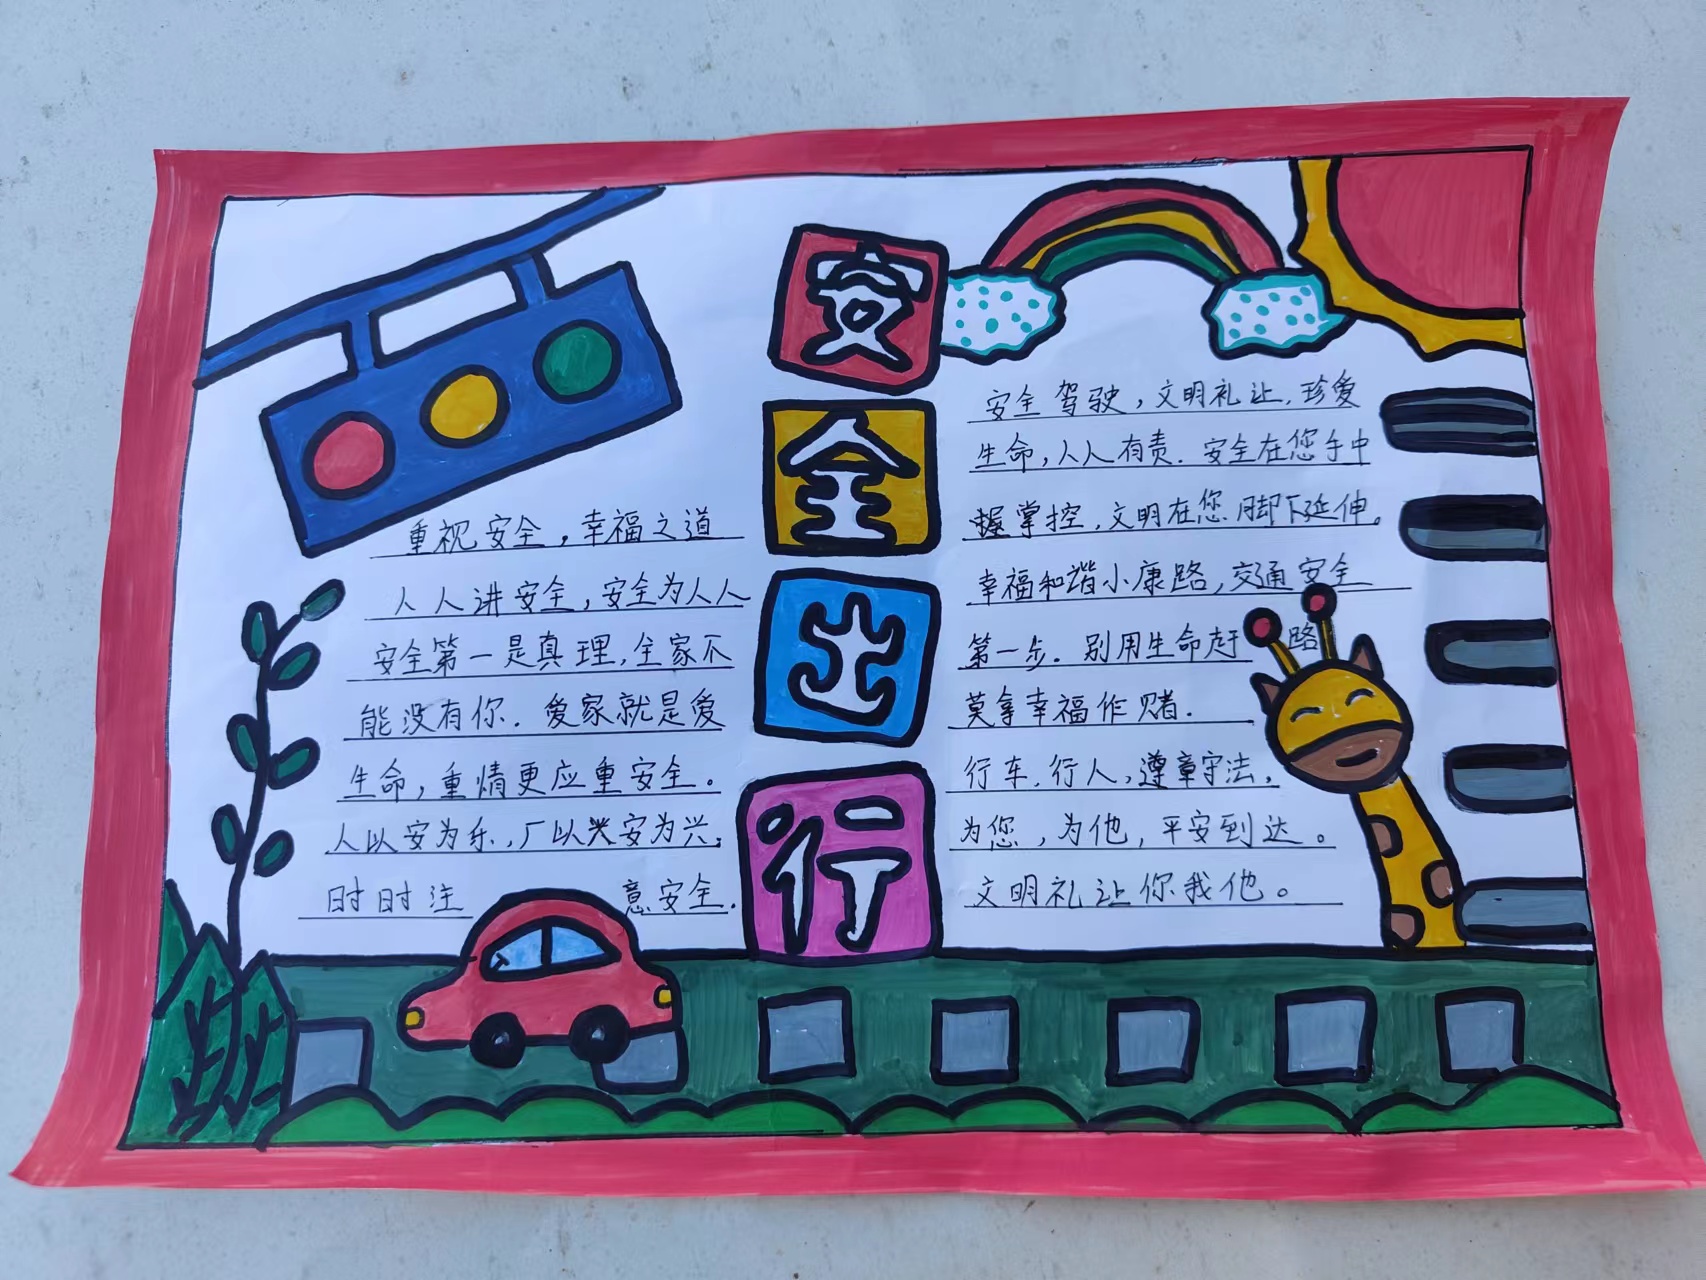 安全出行
重视安全，幸福之道
人人讲安全，安全为人人
安全第一是真理，全家不
能没有你．爱家就是爱
生命，重情更应重安全。
人以安为乐，厂以安为兴，
时时注意安全．
安全驾驶，文明礼让．珍爱
生命，人人有责．安全在您手中
握掌控，文明在您脚下延伸。
幸福和谐小康路，交通安全
第一步．别用生命赶路
莫拿幸福作赌．
行车．行人，遵章守法，
为您，为他，平安到达。
文明礼让你我他。